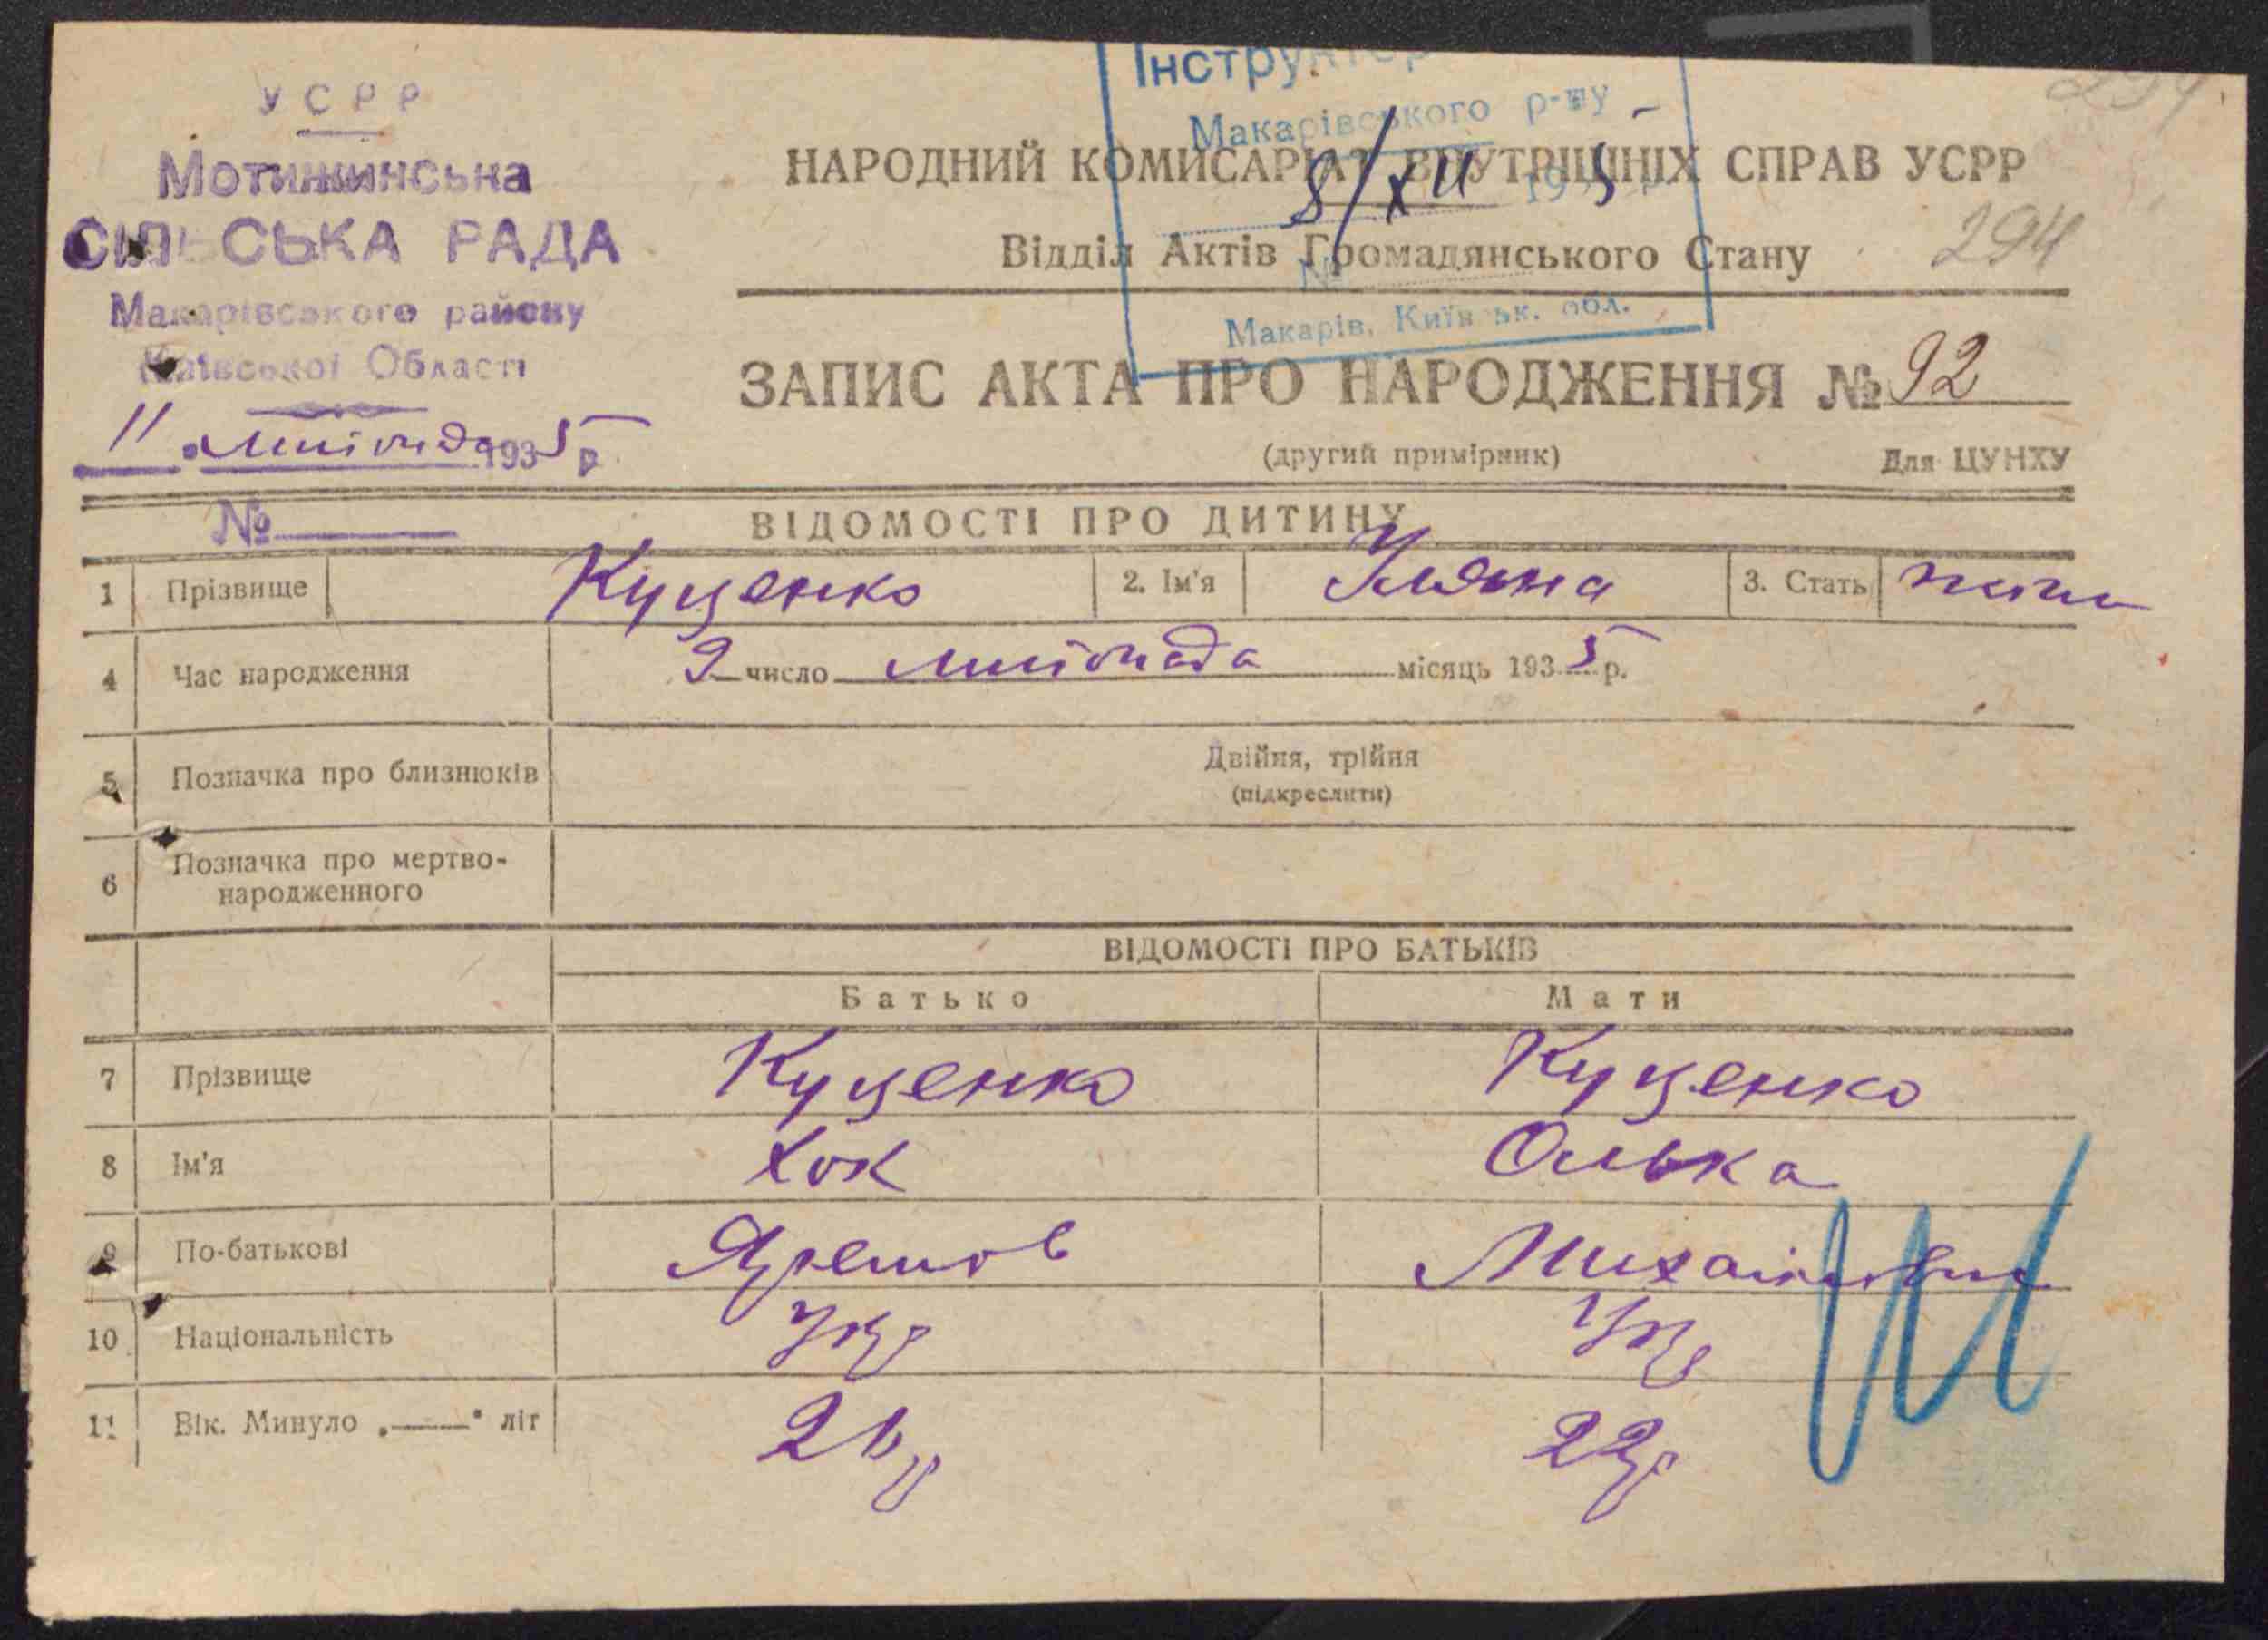 УСРР
Мотижинська
СІЛЬСЬКА РАДА
Макарівського району
Київської Області
11 листопада 1935 р
№
Інструктор
Макарівського р-ну
8/XII 1935
№
Макарів, Київськ. обл.
294
НАРОДНИЙ КОМИСАРІАТ ВНУТРІШНІХ СПРАВ УСРР
Відділ Актів Громадянського Стану
294
ЗАПИС АКТА ПРО НАРОДЖЕННЯ № 92
(другий примірник) Для ЦУНХУ
ВІДОМОСТІ ПРО ДИТИНУ
1 Прізвище Куценко 2. Ім'я Уляна 3. Стать жіно
4 Час народження 9 число листопада місяць 1935 р.
5 Позначка про близнюків Двійня, трійня
(підкреслити)
6 Позначка про мертво-
народженного
ВІДОМОСТІ ПРО БАТЬКІВ
Батько Мати
7 Прізвище Куценко Куценко
8 Ім'я Олька
9 По-батькові Михайловна
10 Національність Укр Укр
11 Вік. Минуло „ “ літ 22р